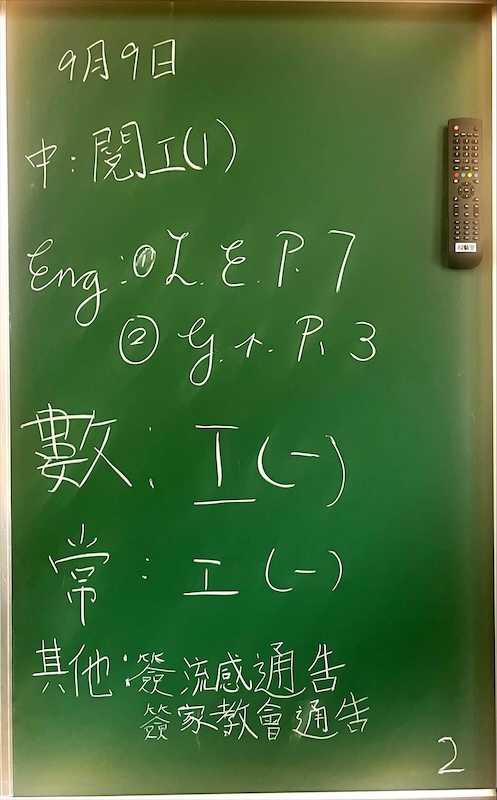 9月9日
中:閱工(1)
Eng:①L.E.P.7
②G.↑.P.3
數:工(一)
常:工(一)
其他:簽流感通告
簽家教會通告
2